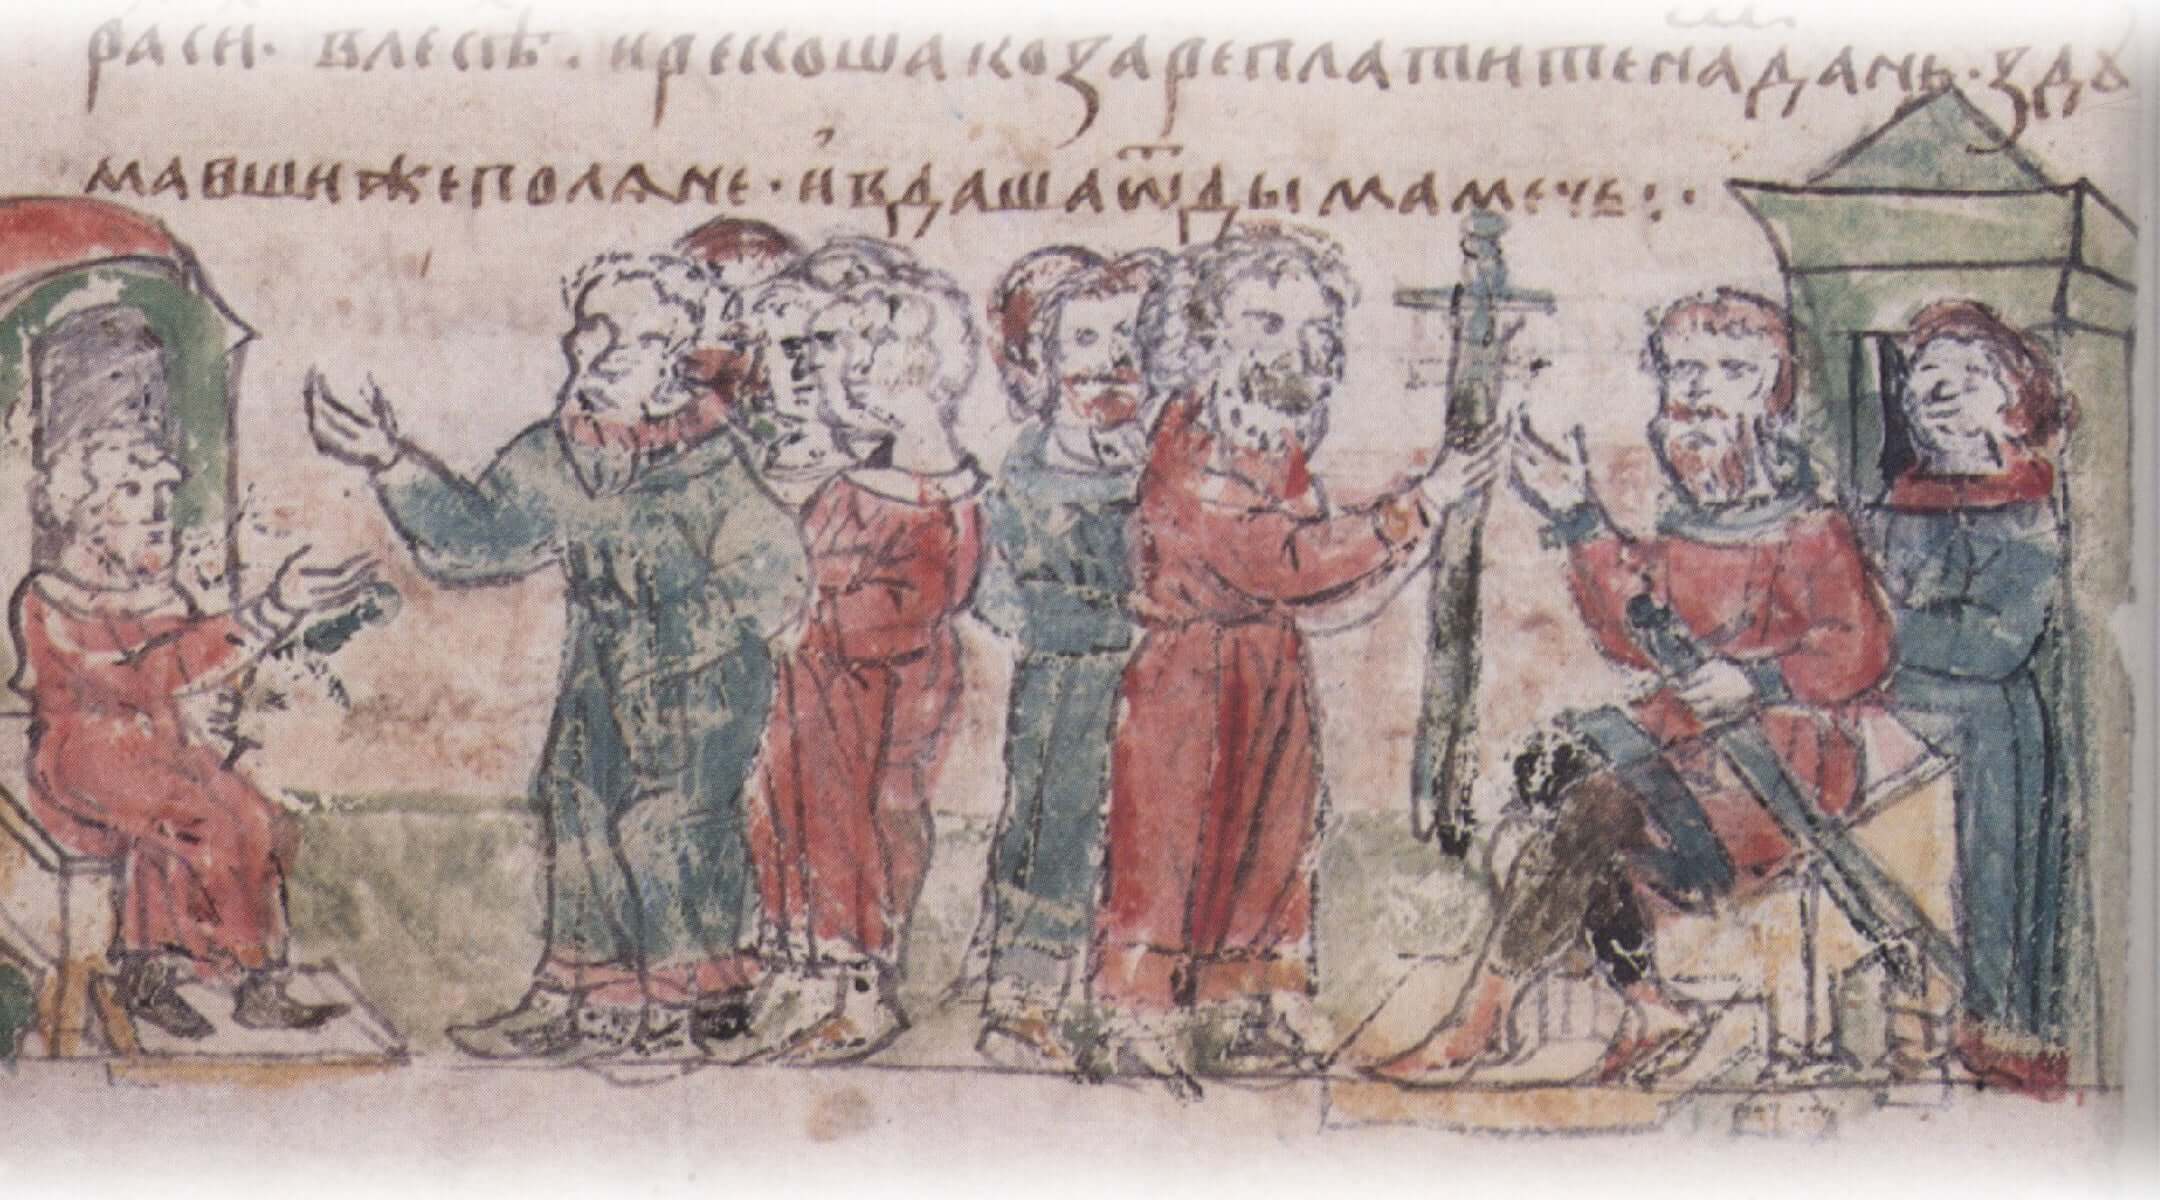 раси · влесѣ · ирекошакозареплатитенадань · здꙋ
мавшижеполѧне · ивдашаѿдымамечь :·